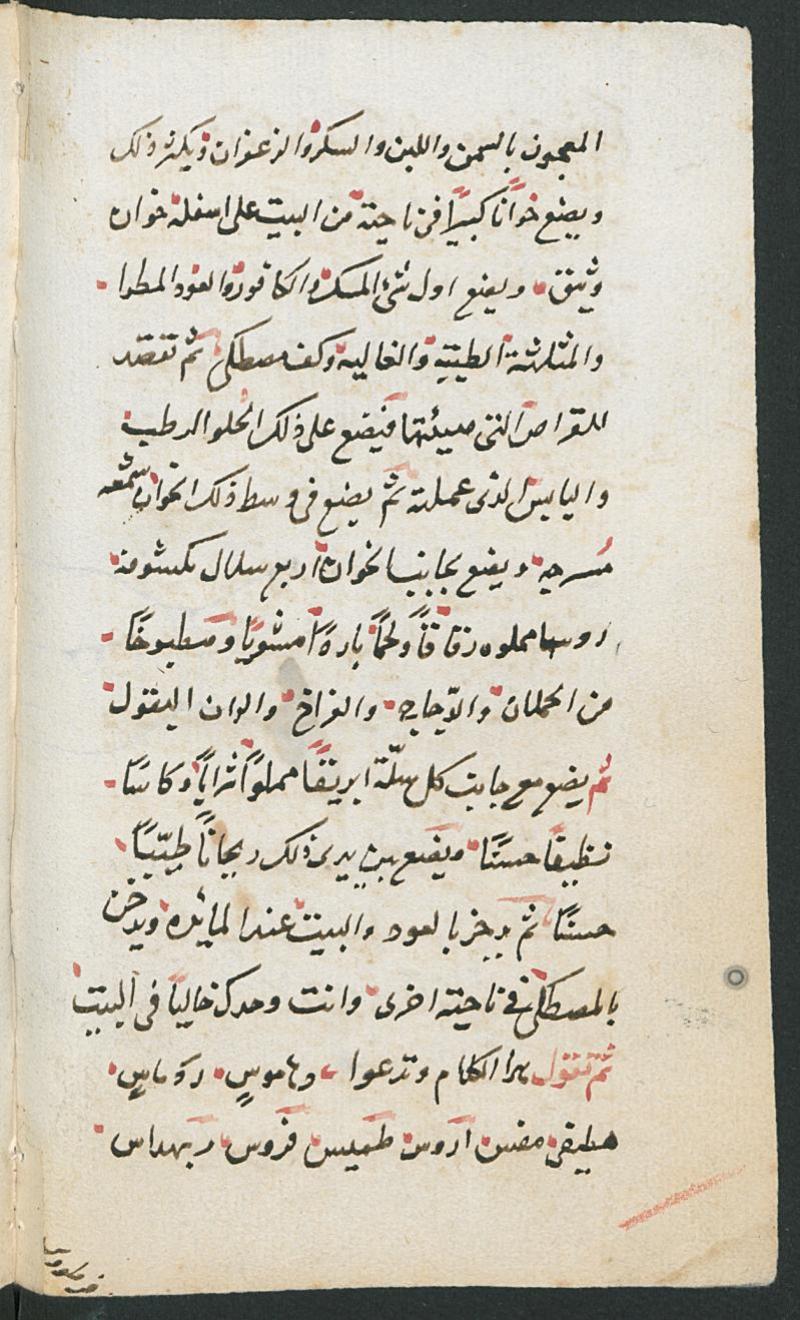 المعجون بالسمن واللبن والسكر والزعفران ويكثر ذلك
ويصنع خوانًا كبيرًا فى ناحية من البيت على اسفله خوان
وثيق ويضع اول شئ المسك والكافور والعود المطرا
والمثلثة الطيبه والغاليه وكف مصطكى ثم تقصد
للقراص التى هيئتها فيضع على ذلك الحلو الرطب
واليابس الذى عملته ثم يضع فى وسط ذلك الخوان شمعه
مسرجه ويضع بجانب الخوان اربع سلال مكشوفة
روسها مملوه رقاقًا ولحمًا باردًا مشويًا ومطبوخًا
من الحملان والدجاج والفراخ والوان البقول
ثم يضع مع جانب كل سلّة ابريقًا مملوًا شرابًا وكاسًا
نظيفًا حسنًا ويضع بين يدى ذلك ريحانًا طيّبًا
حسنًا ثم يبخر بالعود والبيت عند المائده ويدخن
بالمصطكى فى ناحية اخرى وانت وحدك خاليًا فى البيت
ثم تقول هذا الكلام وتدعوا وهاموس روماس
هطيقى مغيس اروس طميس فروس